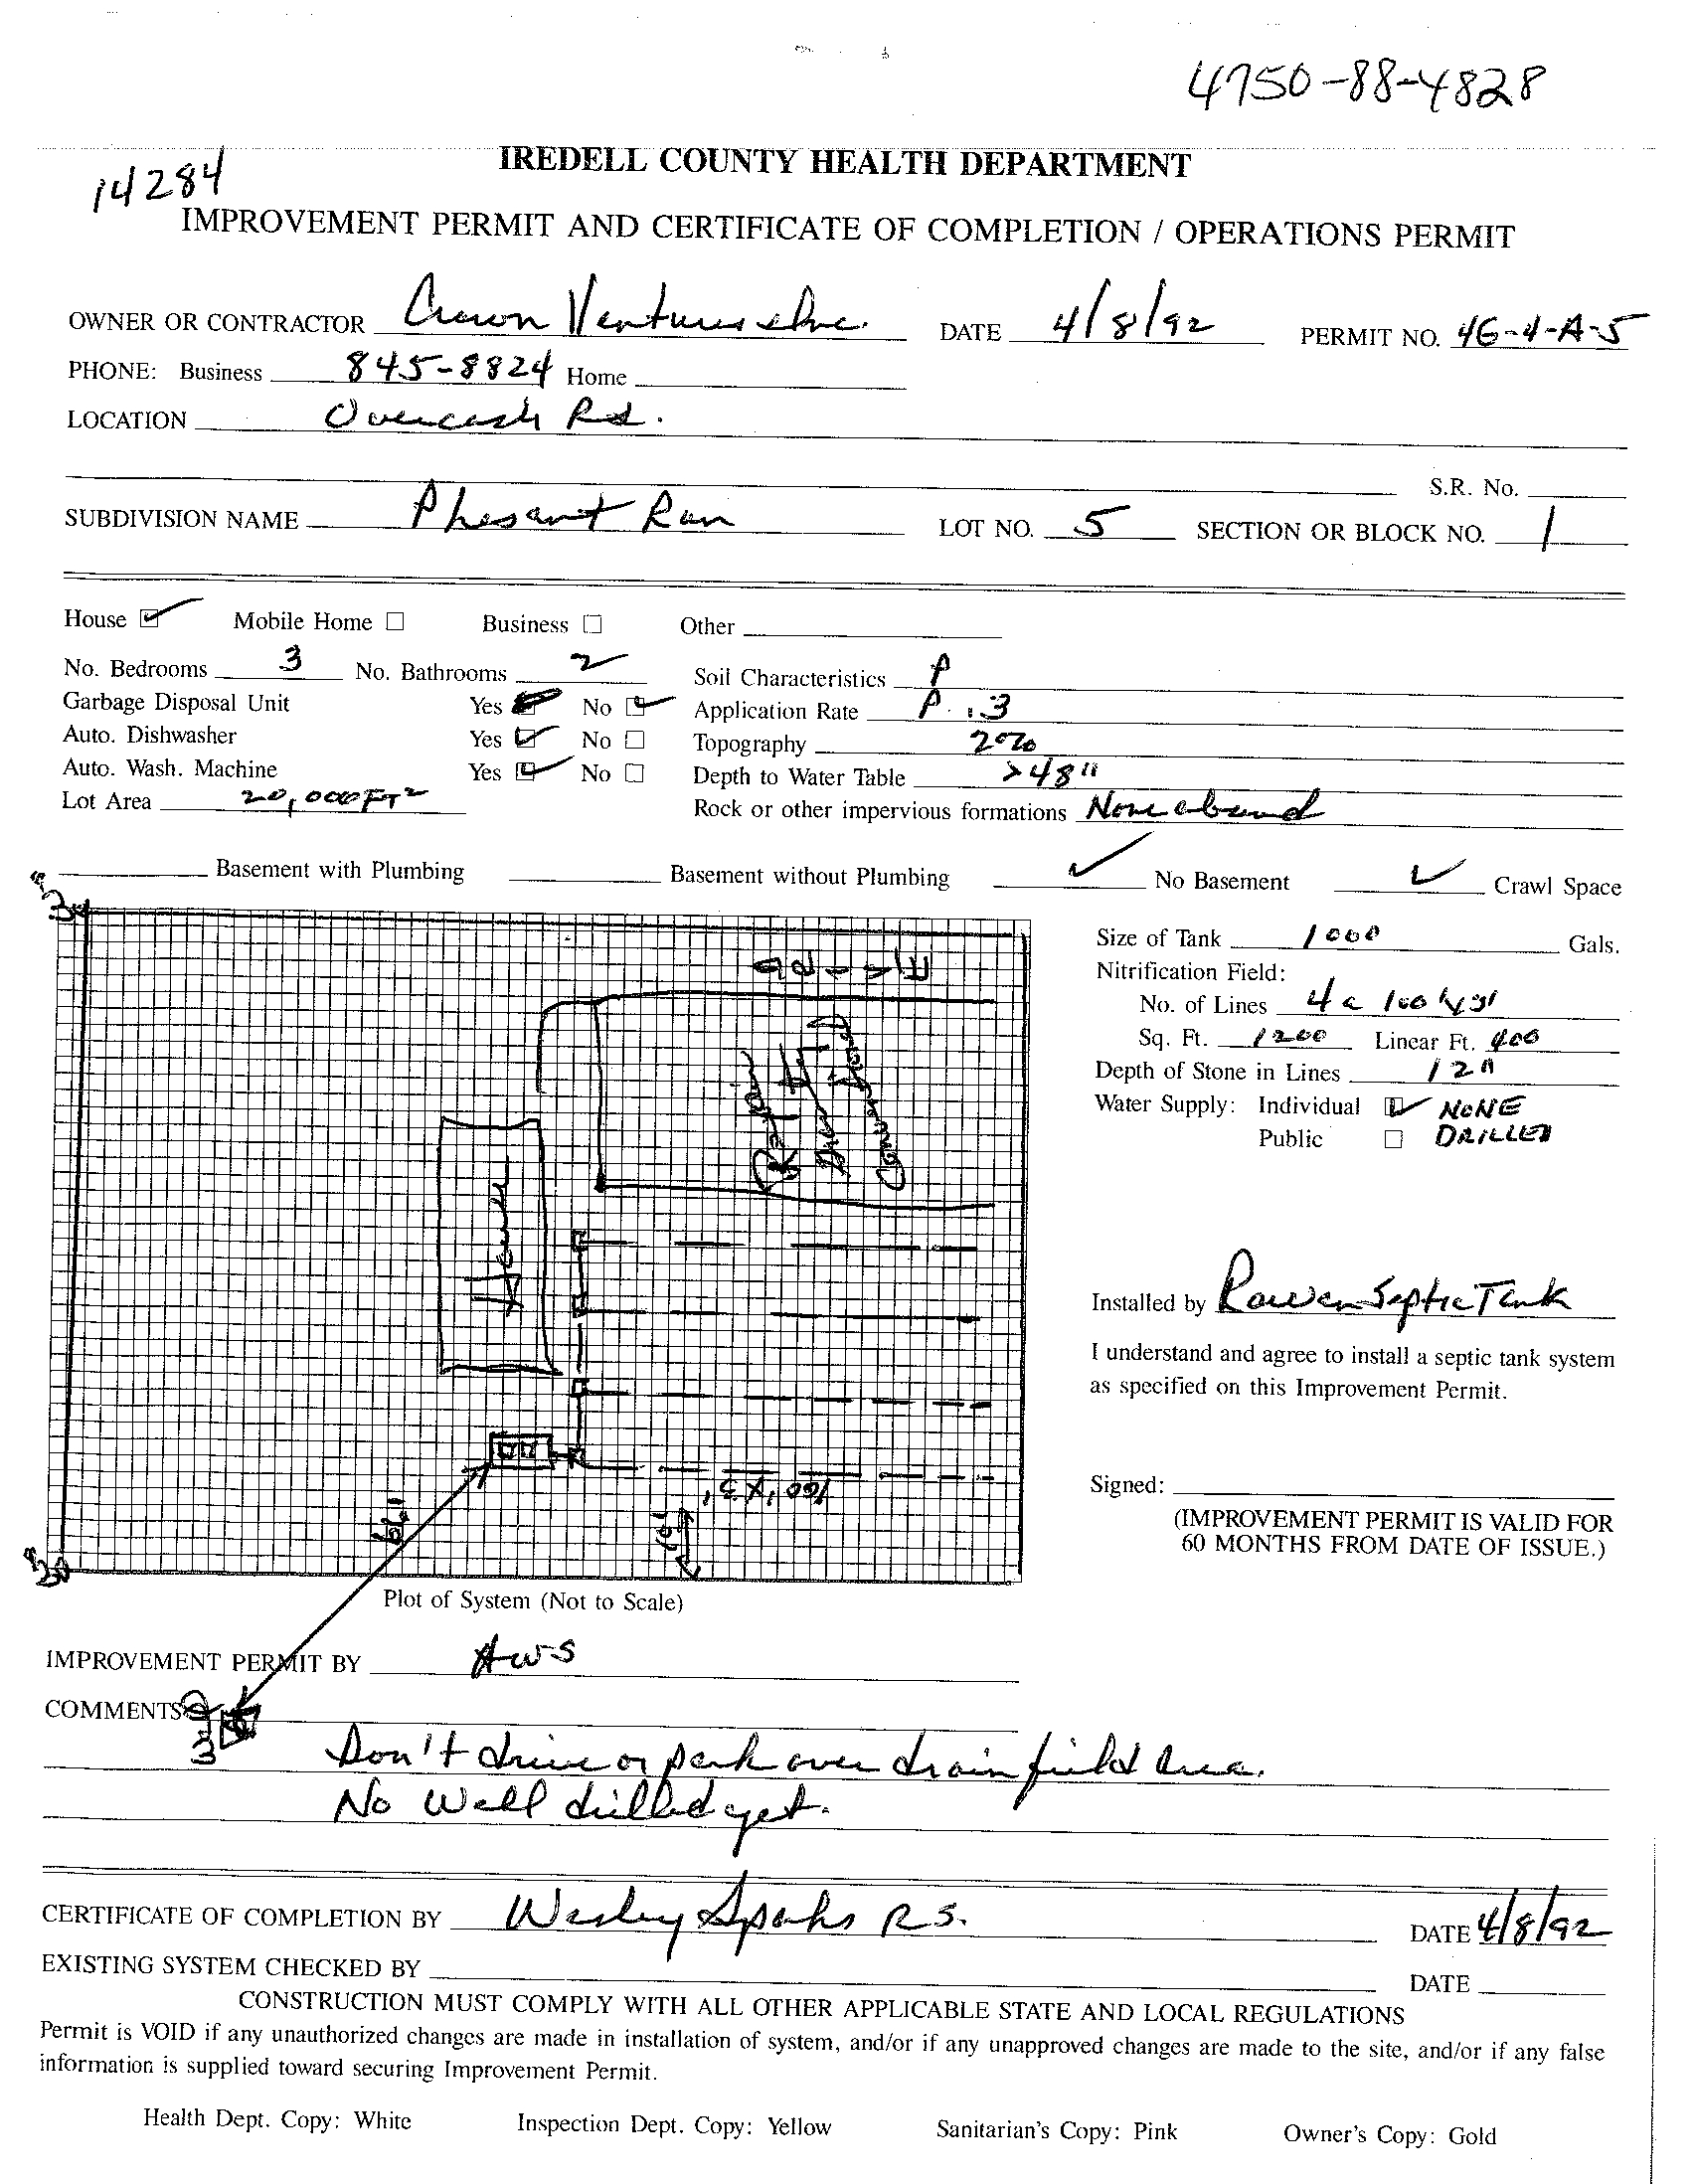 4750-88-4828
14284
IREDELL COUNTY HEALTH DEPARTMENT
IMPROVEMENT PERMIT AND CERTIFICATE OF COMPLETION / OPERATIONS PERMIT
OWNER OR CONTRACTOR Crown Ventures Inc. DATE 4/8/92 PERMIT NO. 4G-4-A-5
PHONE: Business 845-8824 Home
LOCATION Overcash Rd.
S.R. No.
SUBDIVISION NAME Phesant Run LOT NO. 5 SECTION OR BLOCK NO. 1
House ☑ Mobile Home ☐ Business ☐ Other
No. Bedrooms 3 No. Bathrooms 2 Soil Characteristics P
Garbage Disposal Unit Yes No ☑ Application Rate P .3
Auto. Dishwasher Yes ☑ No ☐ Topography 2%
Auto. Wash. Machine Yes ☑ No ☐ Depth to Water Table >48"
Lot Area 20,000FT² Rock or other impervious formations None
Basement with Plumbing Basement without Plumbing ✓ No Basement ✓ Crawl Space
Size of Tank 1000 Gals.
Nitrification Field:
No. of Lines 4 @ 100' by 3'
Sq. Ft. 1200 Linear Ft. 400
Depth of Stone in Lines 12"
Water Supply: Individual ☑ NONE
Public ☐ DRILLED
Repair
House
100' X 3'
10'
Installed by Rowan Septic Tank
I understand and agree to install a septic tank system
as specified on this Improvement Permit.
Signed:
(IMPROVEMENT PERMIT IS VALID FOR
60 MONTHS FROM DATE OF ISSUE.)
Plot of System (Not to Scale)
IMPROVEMENT PERMIT BY AWS
COMMENTS
Don't drive or park over drain field area.
No Well drilled yet.
CERTIFICATE OF COMPLETION BY Wesley Sparks R.S. DATE 4/8/92
EXISTING SYSTEM CHECKED BY DATE
CONSTRUCTION MUST COMPLY WITH ALL OTHER APPLICABLE STATE AND LOCAL REGULATIONS
Permit is VOID if any unauthorized changes are made in installation of system, and/or if any unapproved changes are made to the site, and/or if any false
information is supplied toward securing Improvement Permit.
Health Dept. Copy: White Inspection Dept. Copy: Yellow Sanitarian's Copy: Pink Owner's Copy: Gold